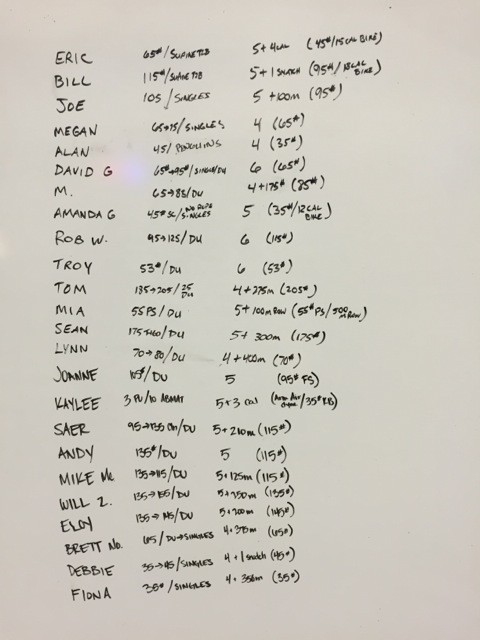 ERIC 65#/SUPINE TTB 5+4CAL (45#/15CAL BIKE)
BILL 115#/SUPINE TTB 5+1 SNATCH (95#/18CAL BIKE)
JOE 105/SINGLES 5+100m (95#)
MEGAN 65→75/SINGLES 4 (65#)
ALAN 45/PENGUINS 4 (35#)
DAVID G 65#→95#/SINGLE/DU 6 (65#)
M. 65→85/DU 4+175# (85#)
AMANDA G 45# SC/NO ROPE SINGLES 5 (35#/12CAL BIKE)
ROB W. 95→125/DU 6 (115#)
TROY 53#/DU 6 (53#)
TOM 135→205/25 DU 4+275m (205#)
MIA 55PS/DU 5+100m ROW (55#PS/500m ROW)
SEAN 175→160/DU 5+300m (175#)
LYNN 70→80/DU 4+400m (70#)
JOANNE 105#/DU 5 (95# FS)
KAYLEE 3 PU/10 ABMAT 5+3 cal (/35# KB)
SAER 95→135 /DU 5+210m (115#)
ANDY 135#/DU 5 (115#)
MIKE Mc 135→115/DU 5+125m (115#)
WILL Z. 135→155/DU 5+250m (135#)
ELOY 135→145/DU 5+200m (145#)
BRETT No. 65/DU→SINGLES 4+375m (65#)
DEBBIE 35→45/SINGLES 4+1 snatch (45#)
FIONA 35#/SINGLES 4+350m (35#)